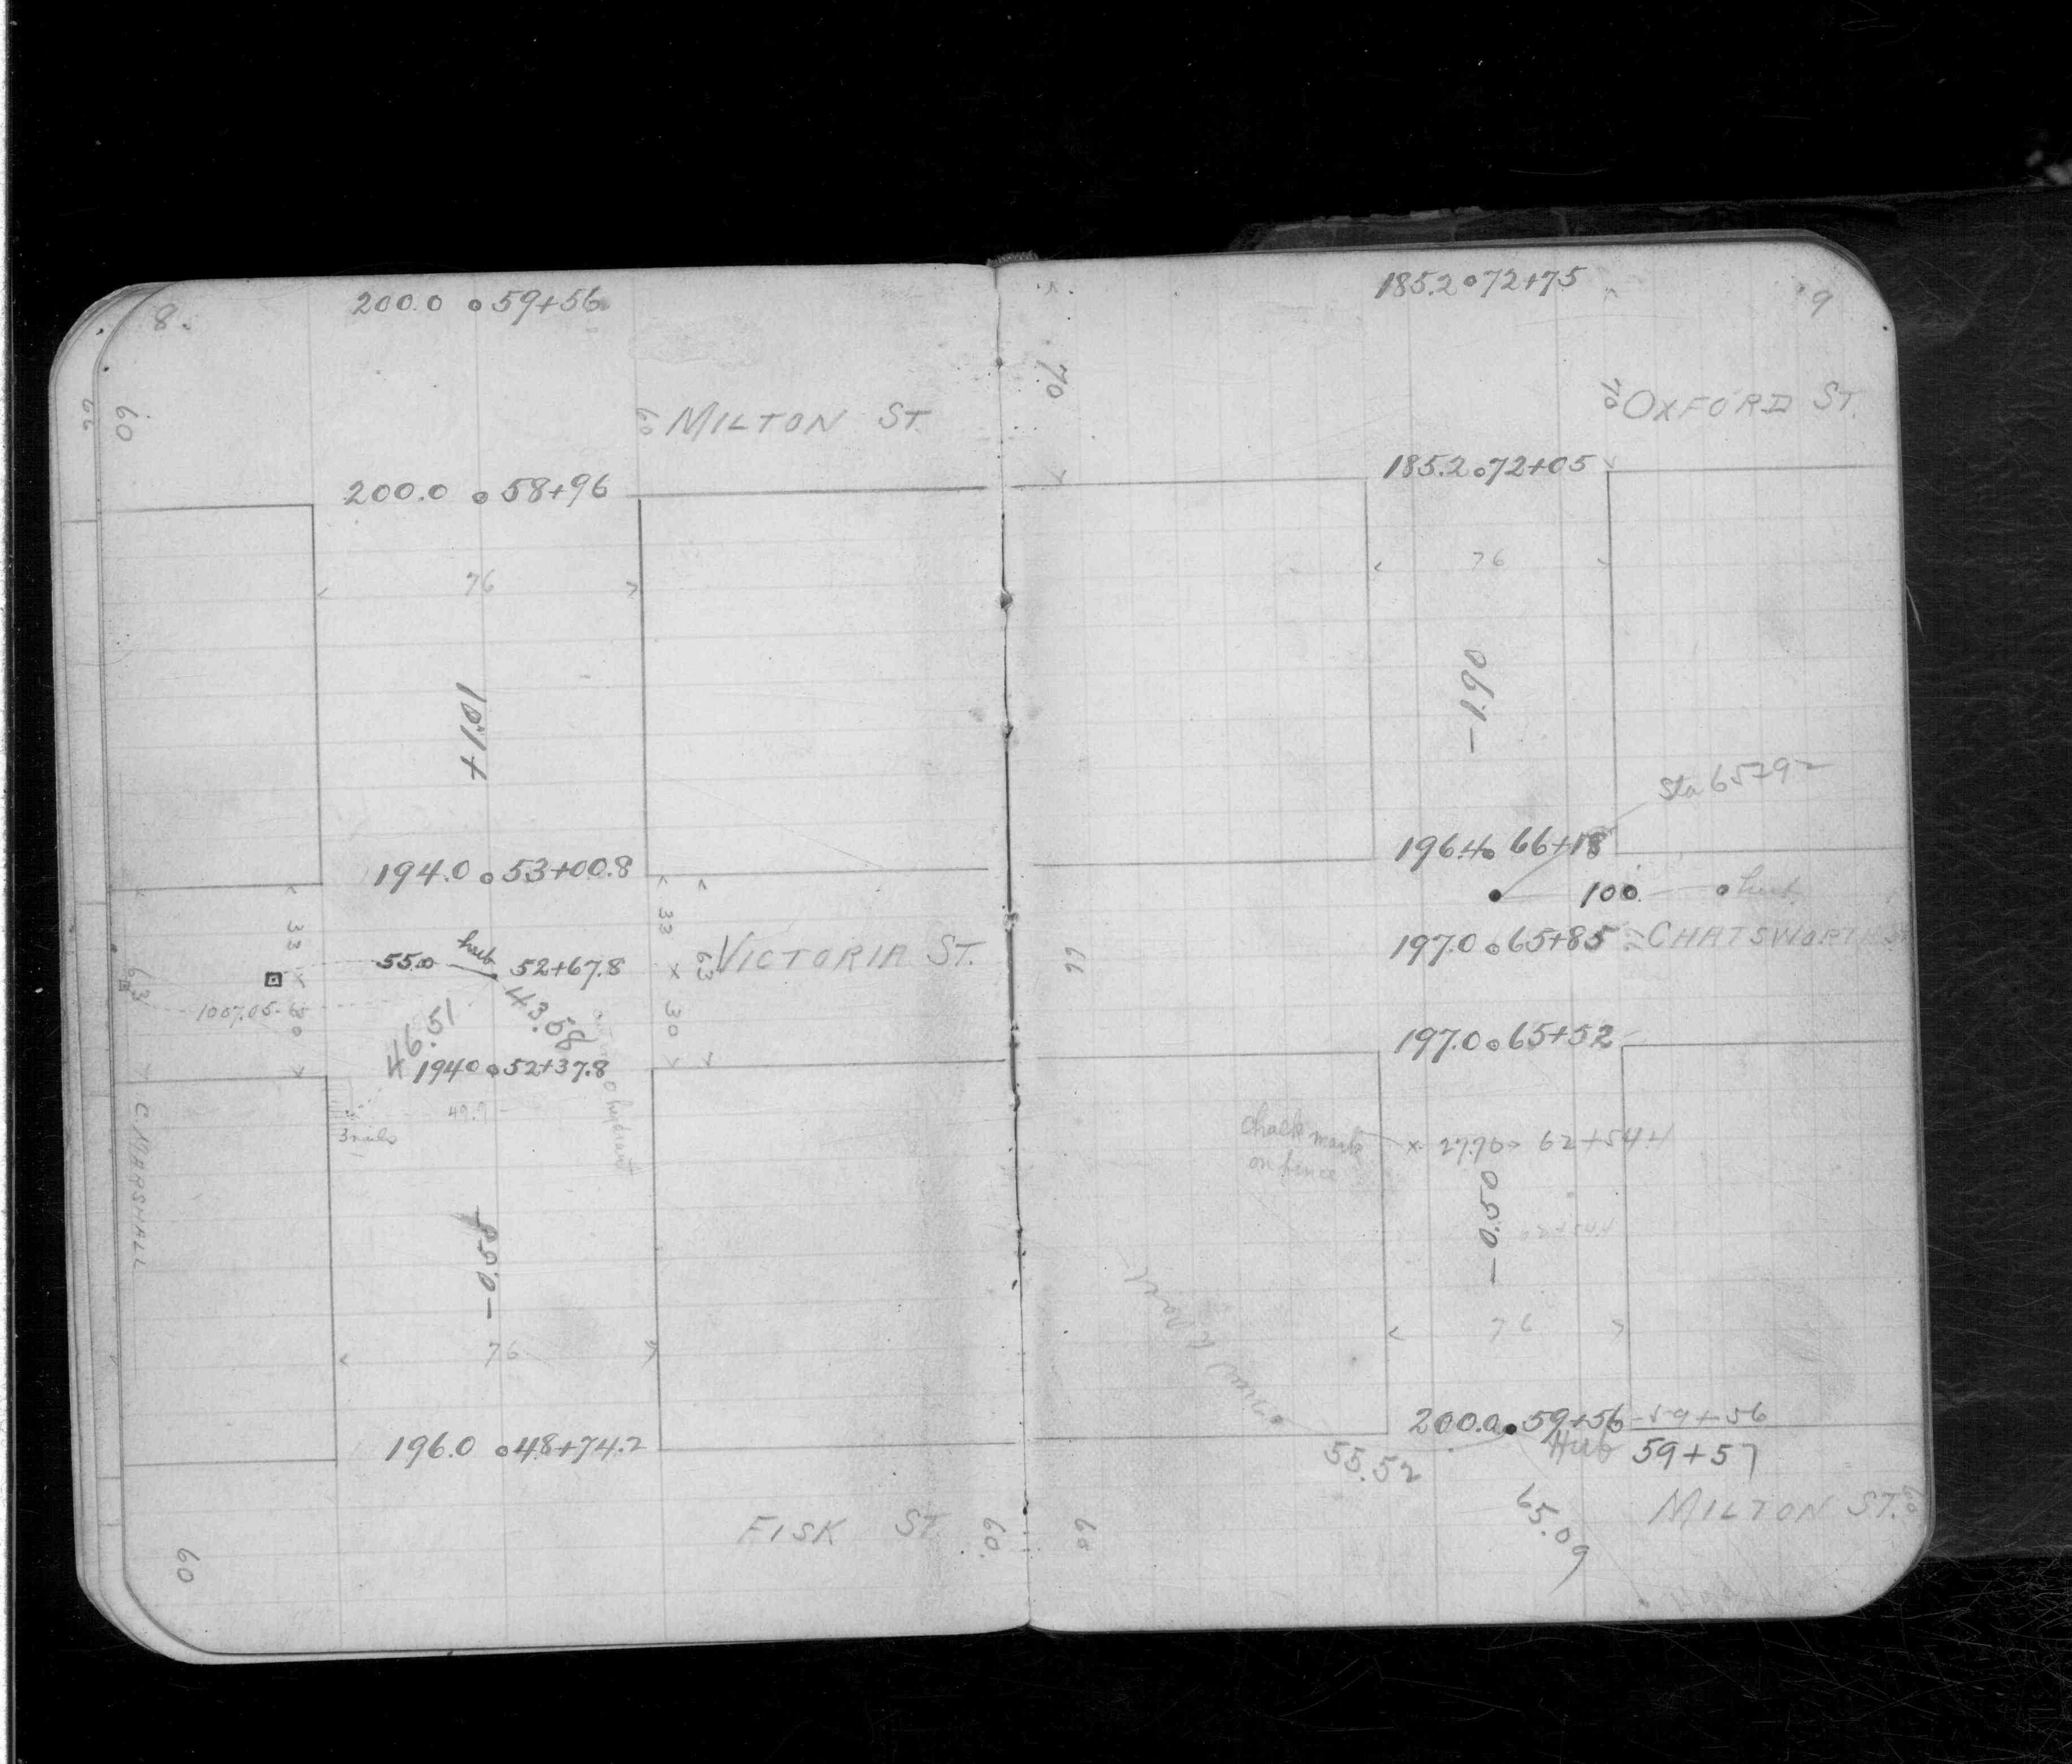 8.
200.0 59+56
60
60
60 MILTON ST.
200.0 58+96
76
+1.01
194.0 53+00.8
33
33
63
55.0 hub 52+67.8
VICTORIA ST.
63
1007.05
30
30
46.51
43.58
194.0 52+37.8
hydrant
49.9
3 nails
C. MARSHALL
-0.54
76
196.0 48+74.2
FISK ST.
60.
60
9
185.2 72+75
70
70 OXFORD ST.
185.2 72+05
76
-1.90
Sta 65+92
196.4 66+18
100 hub
197.0 65+85
CHATSWORTH ST
66
197.0 65+52
chalk mark
on fence
x 27.70 62+54.4
-0.50
62+54.4
76
200.0 59+56 - 59+56
Hub 59+57
55.52
65.09
MILTON ST. 60
60